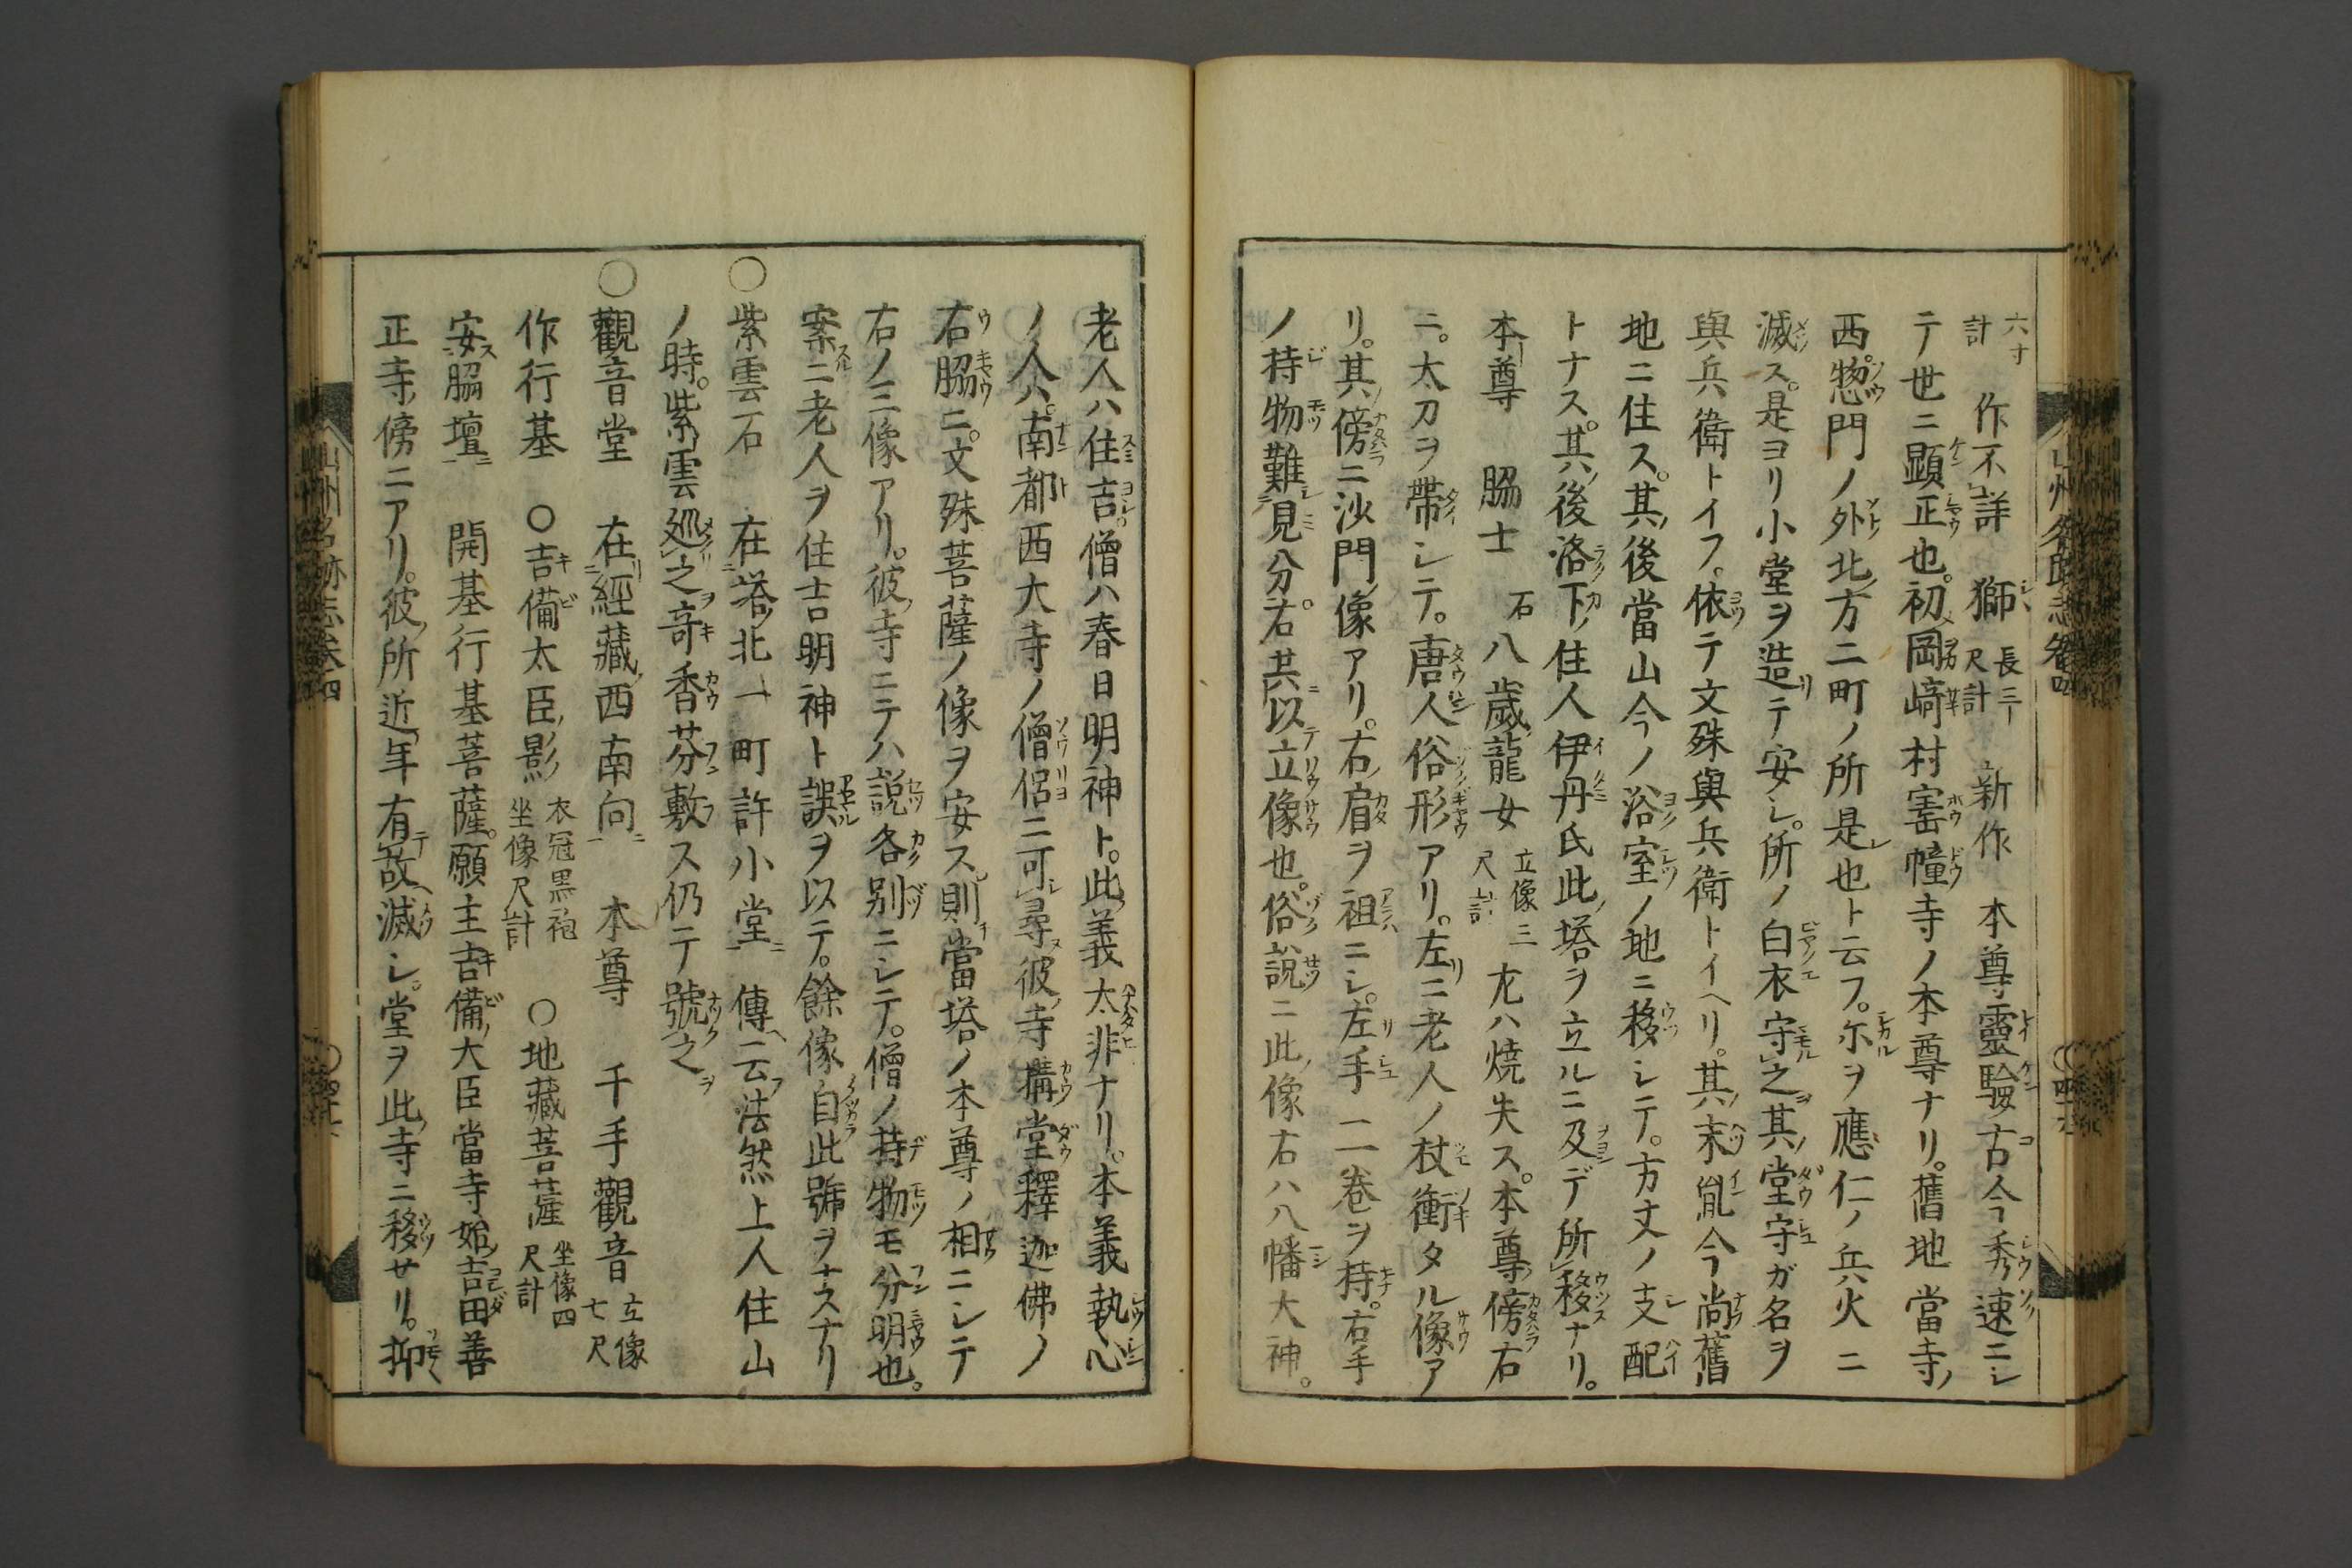 六寸計 作不詳 獅 長三尺計 新作 本尊靈驗古今秀速ニシ
テ世ニ顯正也。初メ岡﨑村寳幢寺ノ本尊ナリ。舊地當寺ノ
西惣門ノ外北ノ方二町ノ所是也ト云フ。尓ルヲ應仁ノ兵火ニ
滅ス。是ヨリ小堂ヲ造リテ安シ。所ノ白衣守之其ノ堂守ガ名ヲ
與兵衛トイフ。依テ文殊與兵衛トイヘリ。其ノ末胤今尚舊
地ニ住ス。其ノ後當山今ノ浴室ノ地ニ移シテ。方丈ノ支配
トナス。其ノ後洛下ノ住人伊丹氏此ノ塔ヲ立ルニ及デ所移ナリ。
本尊 脇士 石 八歳ノ龍女 立像三尺計 尤ハ焼失ス。本尊ノ傍右
ニ。太刀ヲ帶シテ。唐人俗形アリ。左リニ老人ノ杖衝タル像ア
リ。其ノ傍ニ沙門ノ像アリ。右ノ肩ヲ袒ニシ。左リ手ニ一卷ヲ持。右手
ノ持物難見分。右其以立像也。俗說ニ此ノ像右ハ八幡大神。
老人ハ住吉。僧ハ春日明神ト。此ノ義太非ナリ。本義執心
ノ人ハ。南都西大寺ノ僧侶ニ可尋。彼ノ寺ノ講堂釋迦佛ノ
右脇ニ。文殊菩薩ノ像ヲ安ス。則チ當塔ノ本尊ノ相ニシテ
右ノ三像アリ。彼ノ寺ニテハ說各別ニシテ。僧ノ持物モ分明也。
案ニ老人ヲ住吉明神ト誤ヲ以テ。餘像自此號ヲナスナリ
○紫雲石 在塔ノ北一町許小堂 傳云法然上人住山
ノ時。紫雲廻之竒香芬敷ス仍テ號之
○觀音堂 在經藏ノ西南向 本尊 千手觀音 立像七尺
作行基 ○吉備太臣ノ影 衣冠黑袍坐像尺計 ○地藏菩薩 坐像四尺計
安脇壇 開基行基菩薩。願主吉備ノ大臣當寺始吉田善
正寺ノ傍ニアリ。彼ノ所近年有故滅シ。堂ヲ此ノ寺ニ移セリ。抑
山州名跡志卷四